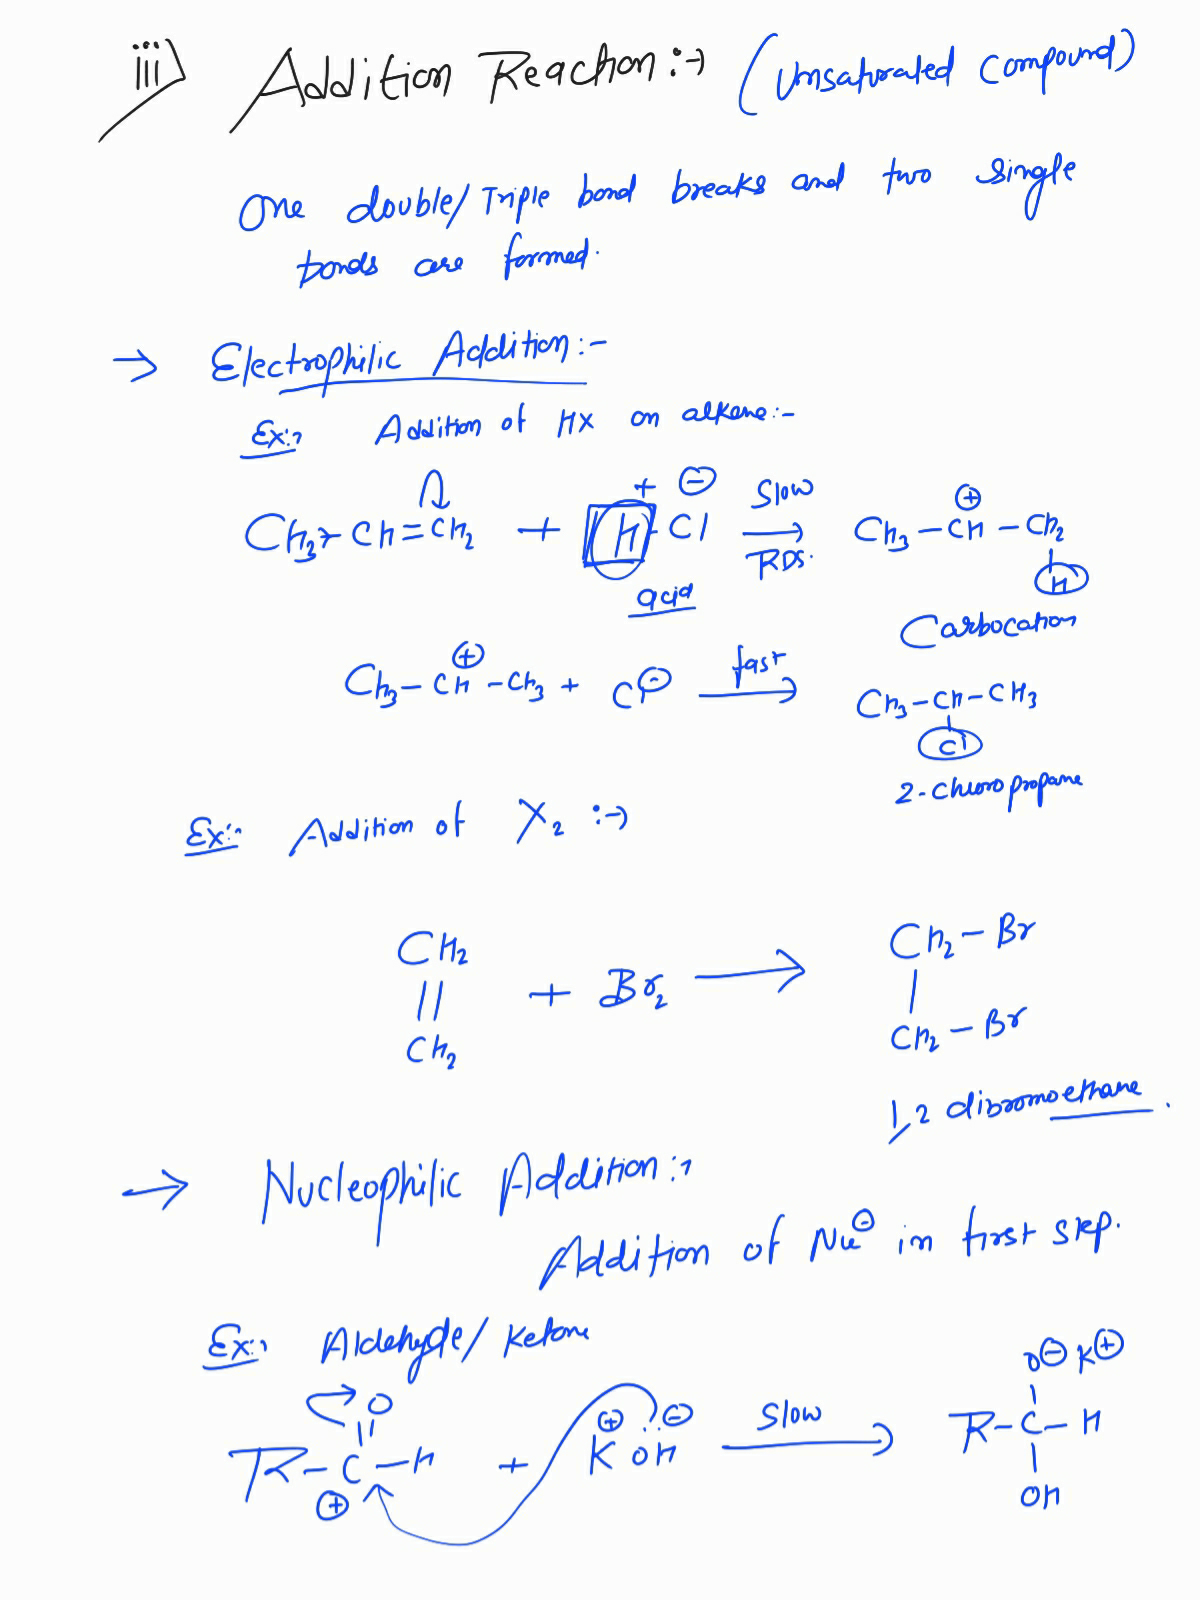 iii) Addition Reaction:→ (Unsaturated Compound)
One double/Triple bond breaks and two single
bonds are formed.
→ Electrophilic Addition:-
Ex:→ Addition of HX on alkene:-
CH3-CH=CH2 + H-Cl + ⊖ Slow RDS. CH3-CH-CH2 ⊕
H
acid
Carbocation
CH3-CH-CH3 ⊕ + Cl⊖ fast → CH3-CH-CH3
Cl
2-chloropropane
Ex:- Addition of X2:→
CH2 = CH2 + Br2 → CH2-Br
CH2-Br
1,2 dibromoethane.
→ Nucleophilic Addition:→
Addition of Nu⊖ in first step.
Ex:→ Aldehyde/Ketone
O O⊖ K⊕
R-C-H ⊕ + K⊕ OH⊖ Slow → R-C-H
OH